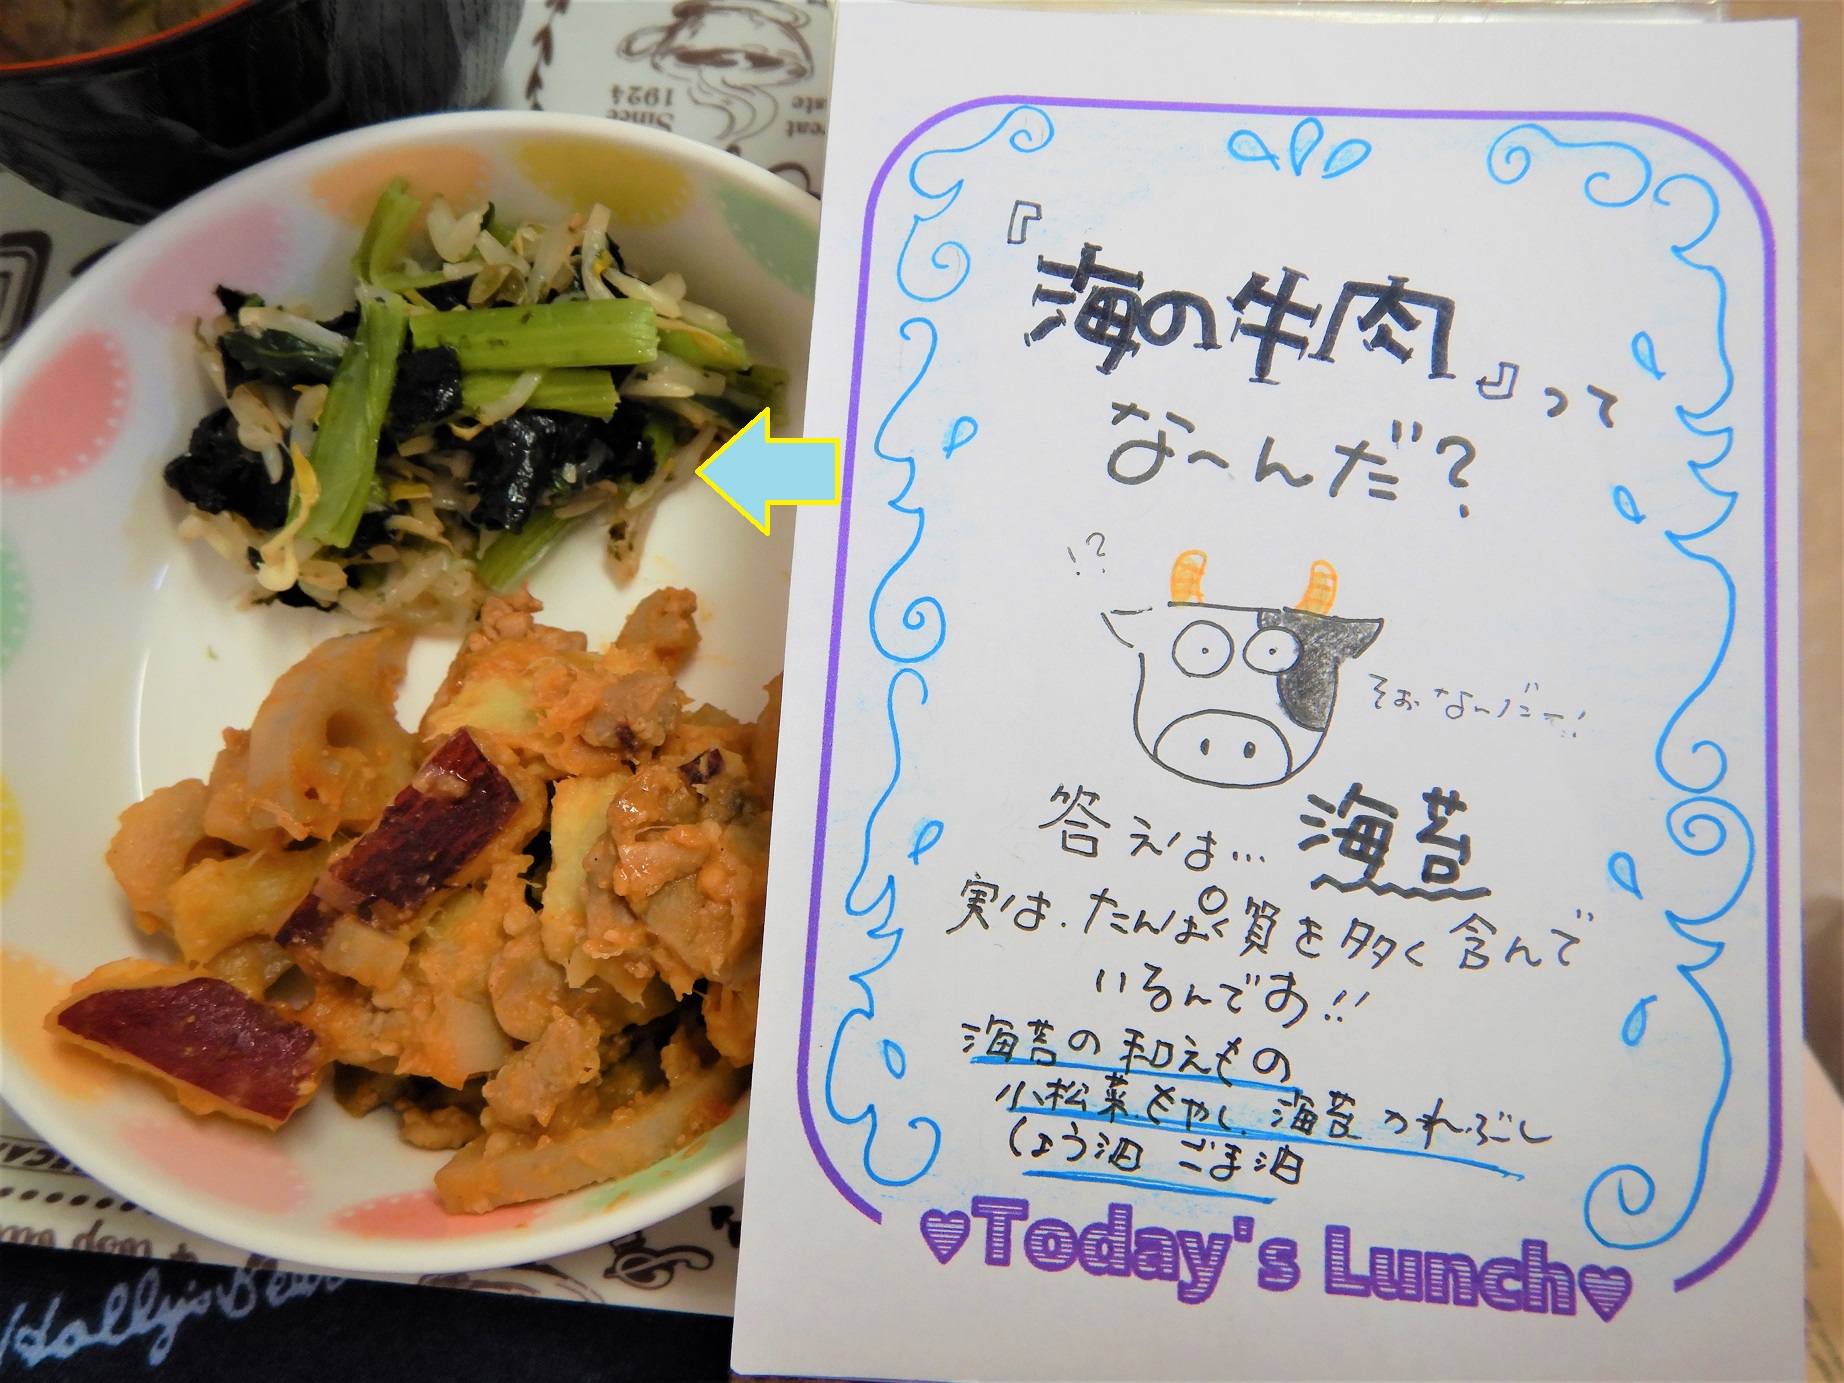 Since
1924
『海の牛肉』って
な〜んだ?
!?
そおなんだー!!
答えは… 海苔
実は、たんぱく質を多く含んで
いるんです!!
海苔の和えもの
小松菜 もやし 海苔 かれぶし
しょう油 ごま油
♥Today's Lunch♥